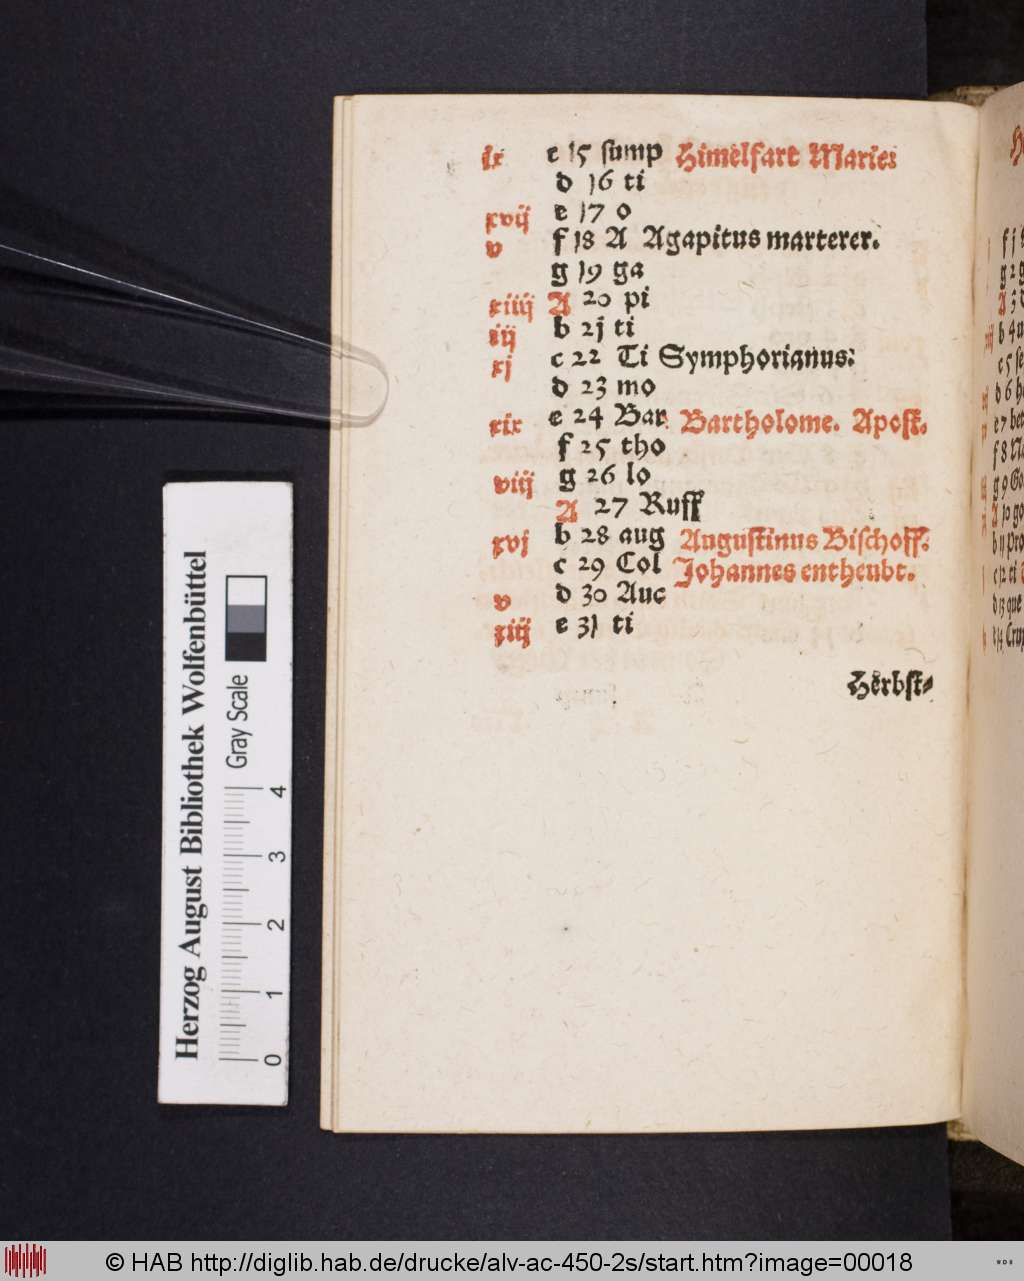 ix e 15 sump Himelfart Maries
d 16 ti
xvij e 17 o
v f 18 A Agapitus marterer.
g 19 ga
xiiij A 20 pi
iij b 2j ti
xj c 22 Ti Symphorianus:
d 23 mo
xix e 24 Bar Bartholome. Apost.
f 25 tho
viij g 26 lo
A 27 Ruff
xvj b 28 aug Augustinus Bischoff.
c 29 Col Johannes entheubt.
v d 30 Auc
xiij e 31 ti
Herbst⸗
Herzog August Bibliothek Wolfenbüttel
Gray Scale
0 1 2 3 4
f j
g 2 g
A 3
b 4
c 5 se
d 6 h
e 7
f 8 Na
g 9 Go
A 10 go
b 11 pro
c 12 ti
d 13 que
© HAB http://diglib.hab.de/drucke/alv-ac-450-2s/start.htm?image=00018